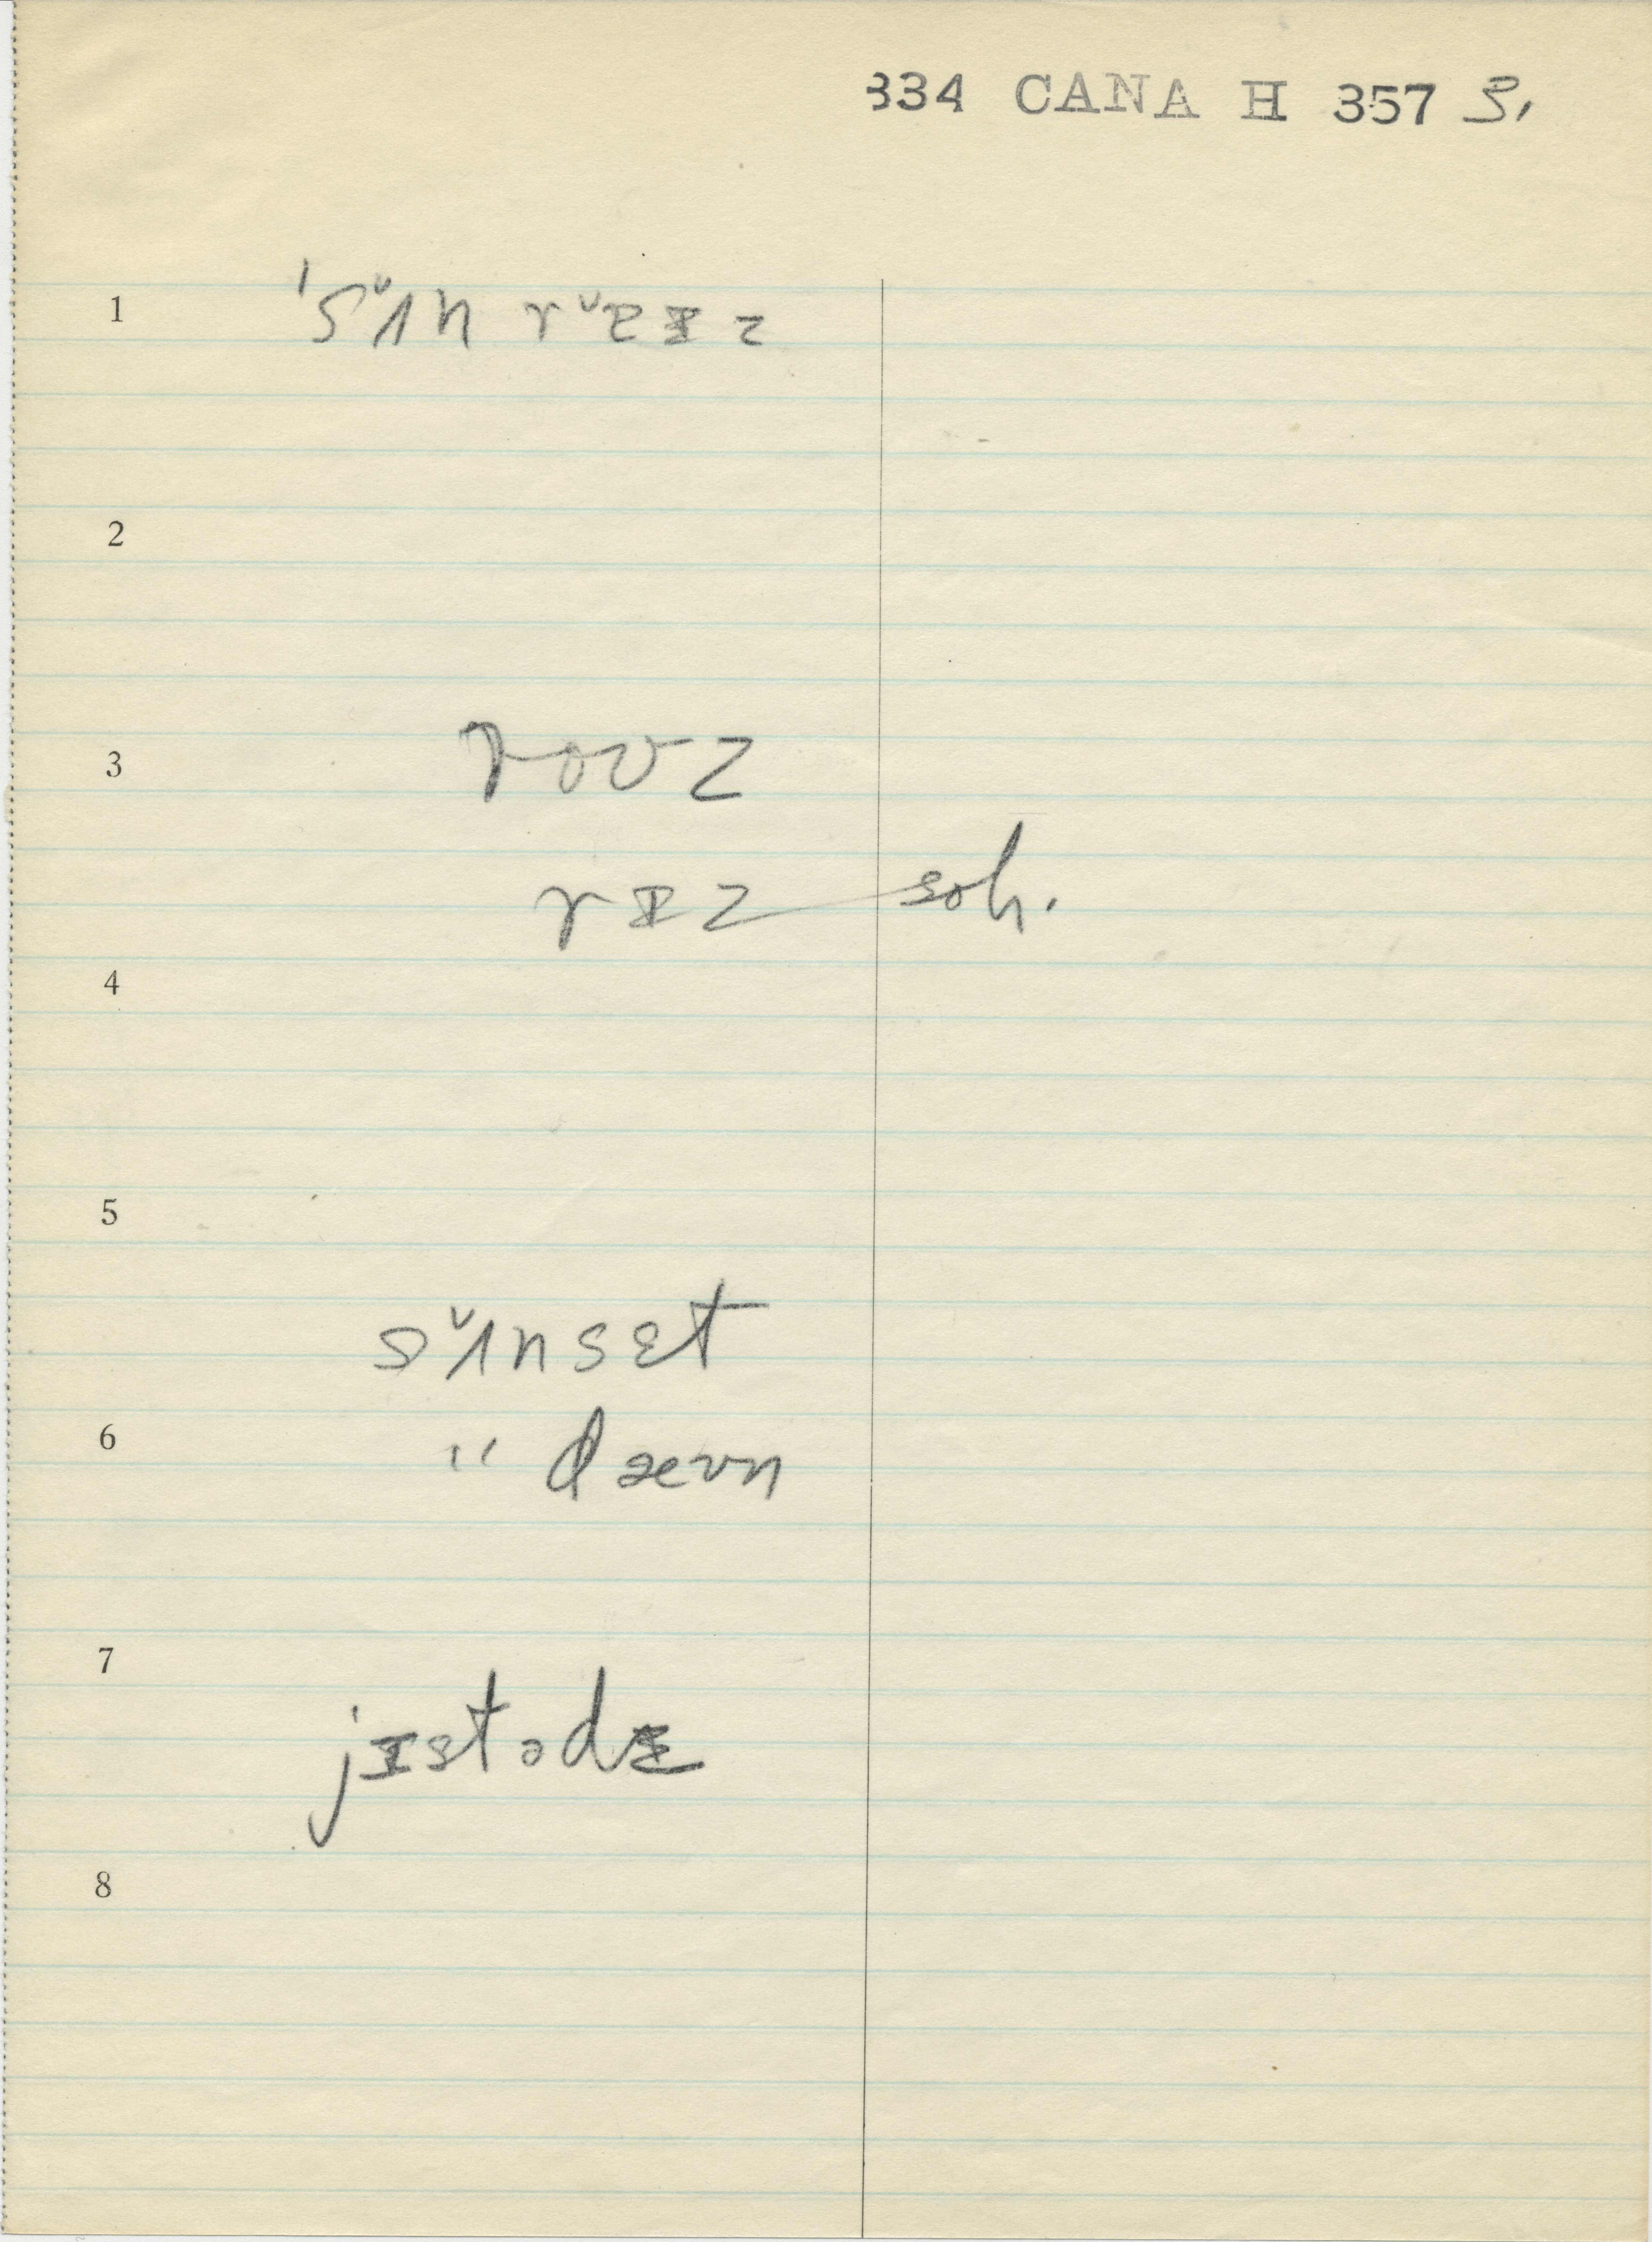 334 CANA H 357 3,
1 'sʌ̌n rɐ̌ɪz
2
3 roʊz
rɪz soh.
4
5
sʌ̌nsɛt
6 " dæʊn
7
jɪstədɪ
8